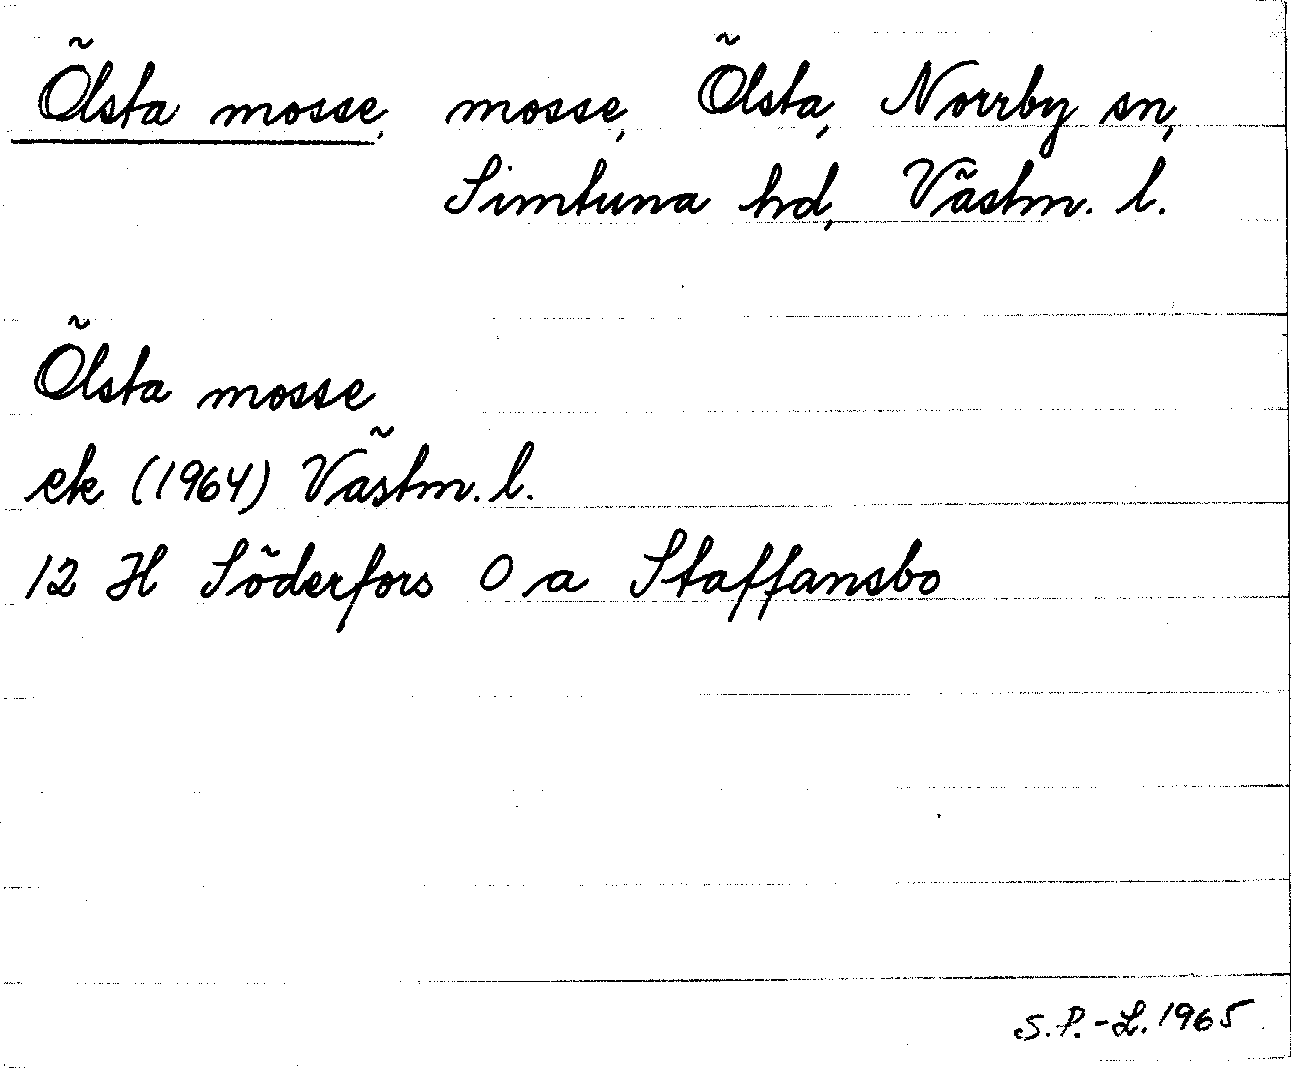 Ölsta mosse, mosse, Ölsta, Norrby sn,
Simtuna hd, Västm. l.
Ölsta mosse
ek (1964) Västm. l.
12 H Söderfors 0 a Staffansbo
S.P.-L. 1965